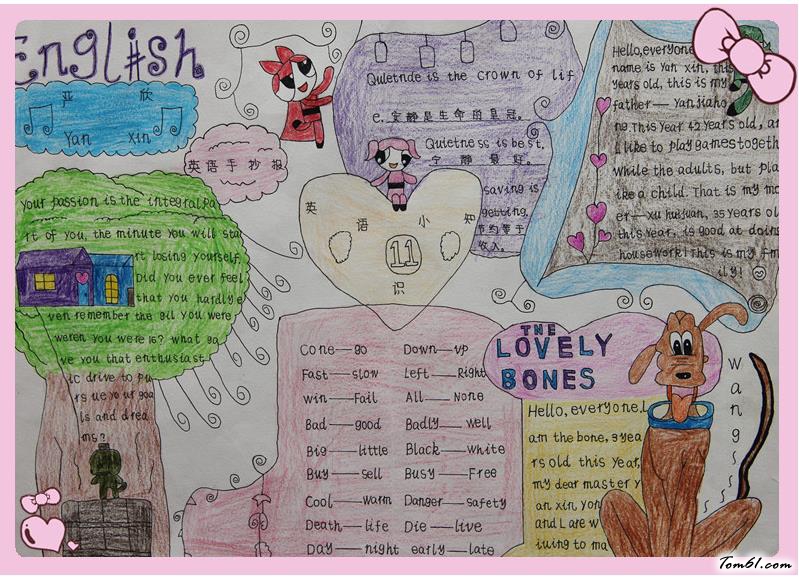 English
严 欣
Yan Xin
英语手抄报
Quietnde is the crown of lif
e. 安静是生命的皇冠。
Quietness is best.
宁 静 最 好。
saving is
getting.
节约等于
收入。
Hello, everyone
name is Yan xin, this
years old, this is my
father— Yan jiaho
ng This Year 42 years old, an
d like to play games togeth
while the adults, but pla
like a child. That is my mo
er—xu huijuan, 35 years ol
this year, is good at doing
housework! This is my fam
ily!
英 语 小 知
11
识
your passion is the integral pa
rt of you, the minute you will sta
rt losing yourself.
Did you ever feel
that you hardly e
ven remember the gil you were
weren you were 16? what ga
ve you that enthusiast
ic drive to pu
rs ue your goa
ls and drea
ms?
Cone—go Down—up
Fast—slow Left—Right
win—Fail All—None
Bad—good Badly—well
Big—little Black—white
Buy—sell Busy—Free
Cool—warm Danger—safety
Death—life Die—live
Day—night early—late
THE
LOVELY
BONES
Hello, everyone. I
am the bone, 3 yea
rs old this year,
my dear master y
an xin yon
and I are w
iuing to ma
wangsss
Tom61.com